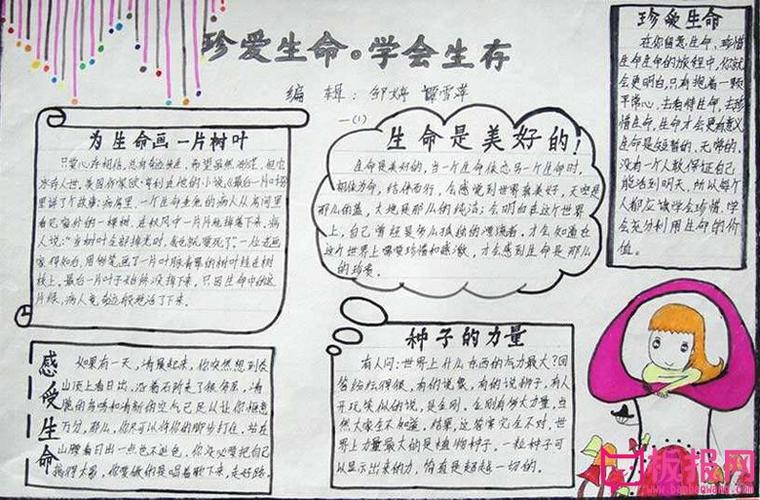 珍爱生命。学会生存
编 辑：邹婷 谭雪萍
一(1)
为生命画一片树叶
只要心存相信，总有奇迹发生，希望虽然渺茫，但它
永存人世。美国作家欧·亨利在他的小说《最后一片叶子》
里讲了个故事：病房里，一个生命垂危的病人从房间里
看见窗外的一棵树，在秋风中一片片地掉落下来。病
人说："当树叶全部掉光时，我也就要死了。"一位老画
家得知后，用彩笔画了一片叶脉青翠的树叶挂在树
枝上。最后一片叶子始终没掉下来。只因生命中的这
片绿，病人竟奇迹般地活了下来。
生命是美好的！
生命是美好的，当一个生命依恋另一个生命时，
相依为命，结伴而行，会感觉到世界真美好，天空是
那么的蓝，大地是那么的纯洁；会明白在这个世界
上，自己曾经是多么孤独的漂流者，才会知道在
这个世界上哪要珍惜和感激，才会感到生命是那么
的珍贵。
珍爱生命
在你留意生命，珍惜
生命生命的旅程中，你就
会更明白，只有抱着一颗
平常心，去看待生命，去珍
惜生命，生命才会更有意义
生命是短暂的，无常的，
没有一个人敢保证自己
能活到明天，所以每个
人都应该学会珍惜，学
会充分利用生命的价
值。
感受生命
如果有一天，清晨起来，你突然想到泰
山顶上看日出，沿着石阶来了很多层，清
脆的鸟鸣和清新的空气已足以让你惬意
万分，那么，你尽可以将你的脚步打住，站在
山腰看日出一点也不逊色，你没必要把自己
搞得太累，你要做的是唱着歌下来，走好路。
种子的力量
有人问：世界上什么东西的气力最大？回
答纷纭得很，有的说象，有的说狮子，有人
开玩笑似的说，是金刚，金刚有多大力量，当
然大家全不知道。结果，这答案完全不对，世
界上力量最大的是植物种子。一粒种子可
以显示出来的力，简直是超越一切的。
板报网
www.banbaowang.com